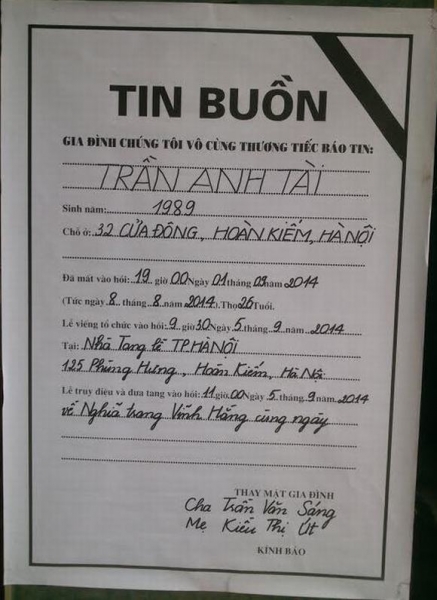 TIN BUỒN
GIA ĐÌNH CHÚNG TÔI VÔ CÙNG THƯƠNG TIẾC BÁO TIN:
TRẦN ANH TÀI
Sinh năm: 1989
Chỗ ở: 32 CỬA ĐÔNG, HOÀN KIẾM, HÀ NỘI
Đã mất vào hồi: 19 giờ 00 Ngày 01 tháng 09 năm 2014
(Tức ngày 8 tháng 8 năm 2014). Thọ 26 Tuổi.
Lễ viếng tổ chức vào hồi: 9 giờ 30 Ngày 5 tháng 9 năm 2014
Tại: Nhà Tang lễ TP.HÀ NỘI
125 Phùng Hưng, Hoàn Kiếm, Hà Nội
Lễ truy điệu và đưa tang vào hồi: 11 giờ 00 Ngày 5 tháng 9 năm 2014
về Nghĩa trang Vĩnh Hằng cùng ngày
THAY MẶT GIA ĐÌNH
Cha Trần Văn Sáng
Mẹ Kiều Thị Út
KÍNH BÁO